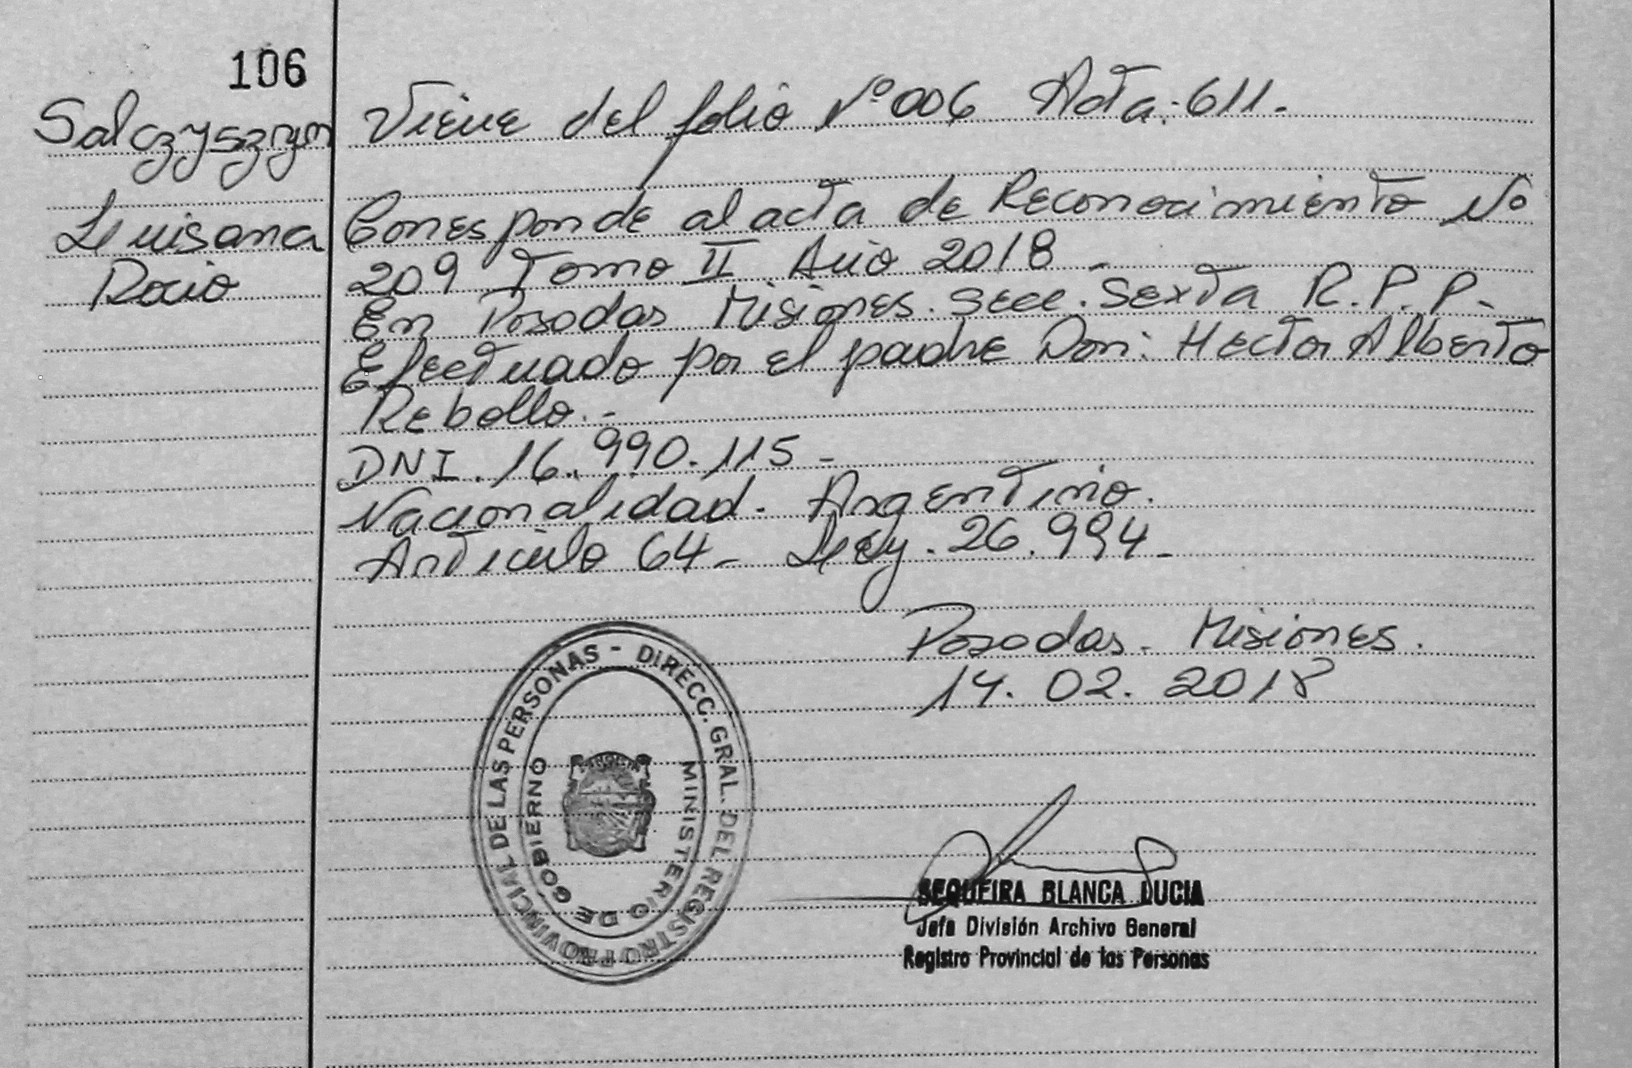 106
Salczyszyn
Luisana
Rocio
Viene del folio Nº 006 Acta: 611.
Corresponde al acta de Reconocimiento No
209 Tomo II Año 2018 -
En Posadas Misiones. Secc. Sexta R.P.P.-
Efectuado por el padre Don: Hector Alberto
Rebollo.-
DNI. 16.990.115 -
Nacionalidad - Argentino.
Articulo 64 - Ley. 26.994 -
Posadas - Misiones.
14. 02. 2018
DIRECC. GRAL. DEL REGISTRO PROVINCIAL DE LAS PERSONAS -
MINISTERIO DE GOBIERNO
SEQUEIRA BLANCA LUCIA
Jefa División Archivo General
Registro Provincial de las Personas